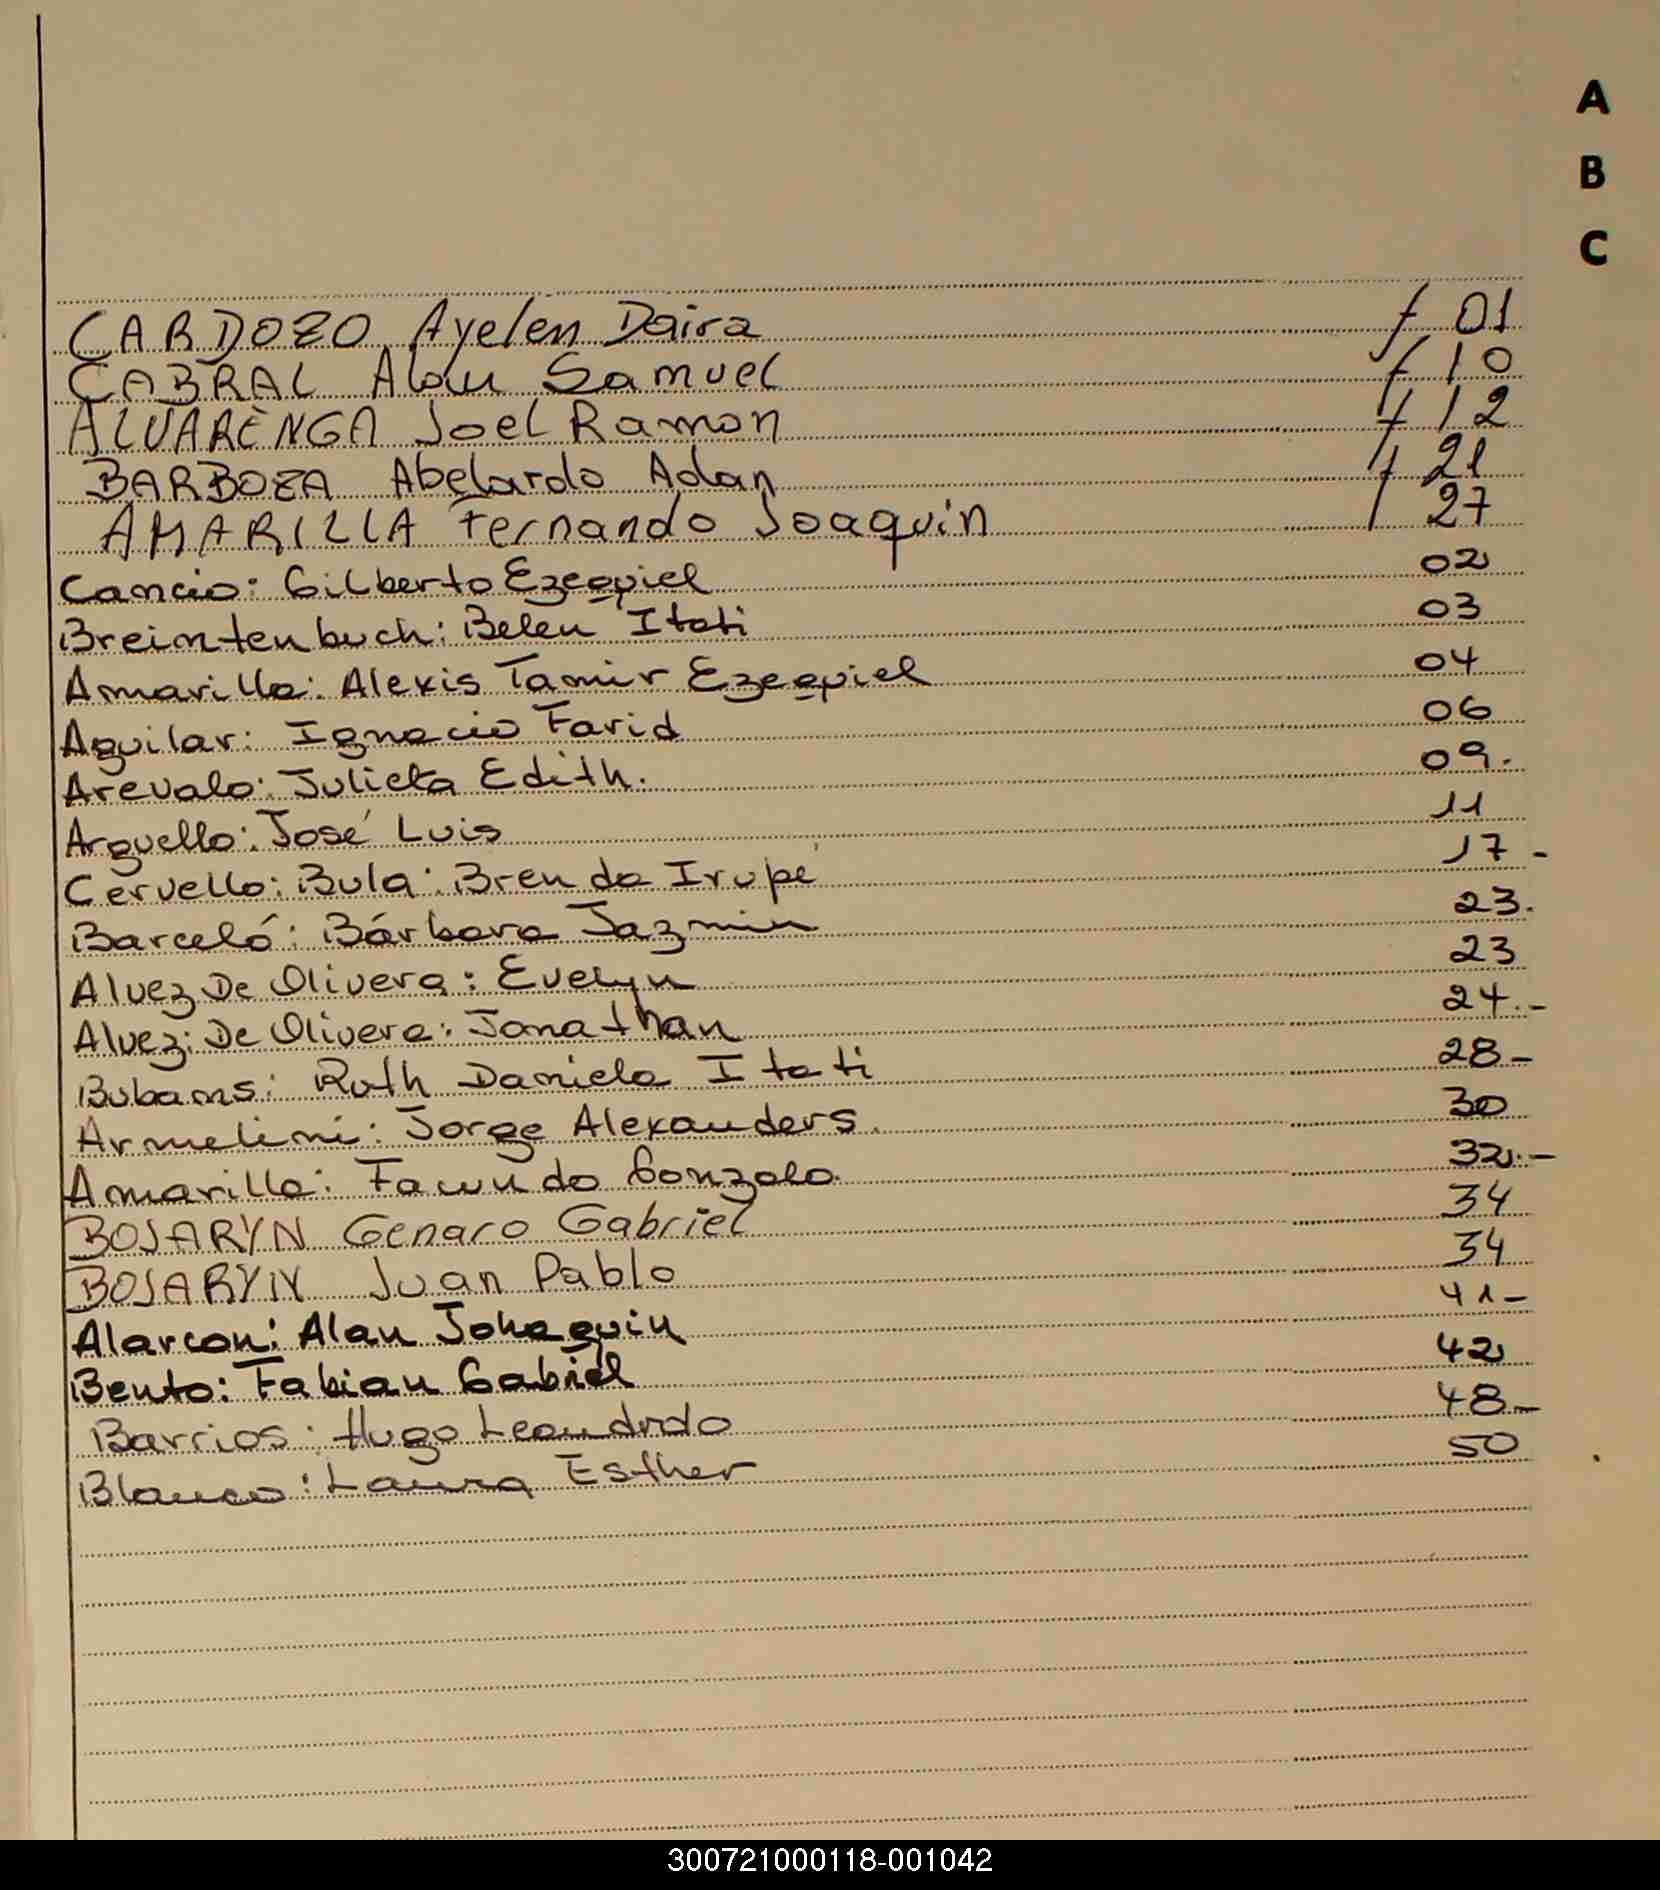 A
B
C
CARDOZO Ayelen Daira f 01
CABRAL Alan Samuel f 10
ALVARENGA Joel Ramon f 12
BARBOZA Abelardo Adan f 21
AMARILLA Fernando Joaquin f 27
Cancio: Gilberto Ezequiel 02
Breintenbuch: Belen Itati 03
Amarilla: Alexis Tamir Ezequiel 04
Aguilar: Ignacio Farid 06
Arevalo: Julieta Edith. 09.
Arguello: José Luis 11
Cervello: Bula: Brenda Irupé 17-
Barceló: Bárbara Jazmin 23.
Alvez De Olivera: Evelyn 23
Alvez: De Olivera: Jonathan 24.-
Bubans: Ruth Daniela Itati 28-
Armelini: Jorge Alexanders. 30
Amarilla: Facundo Gonzalo. 32.-
BOJARYN Genaro Gabriel 34
BOJARYN Juan Pablo 34
Alarcon: Alan Johaquin 41-
Bento: Fabian Gabriel 42
Barrios: Hugo Leandrdo 48-
Blanco: Laura Esther 50
300721000118-001042